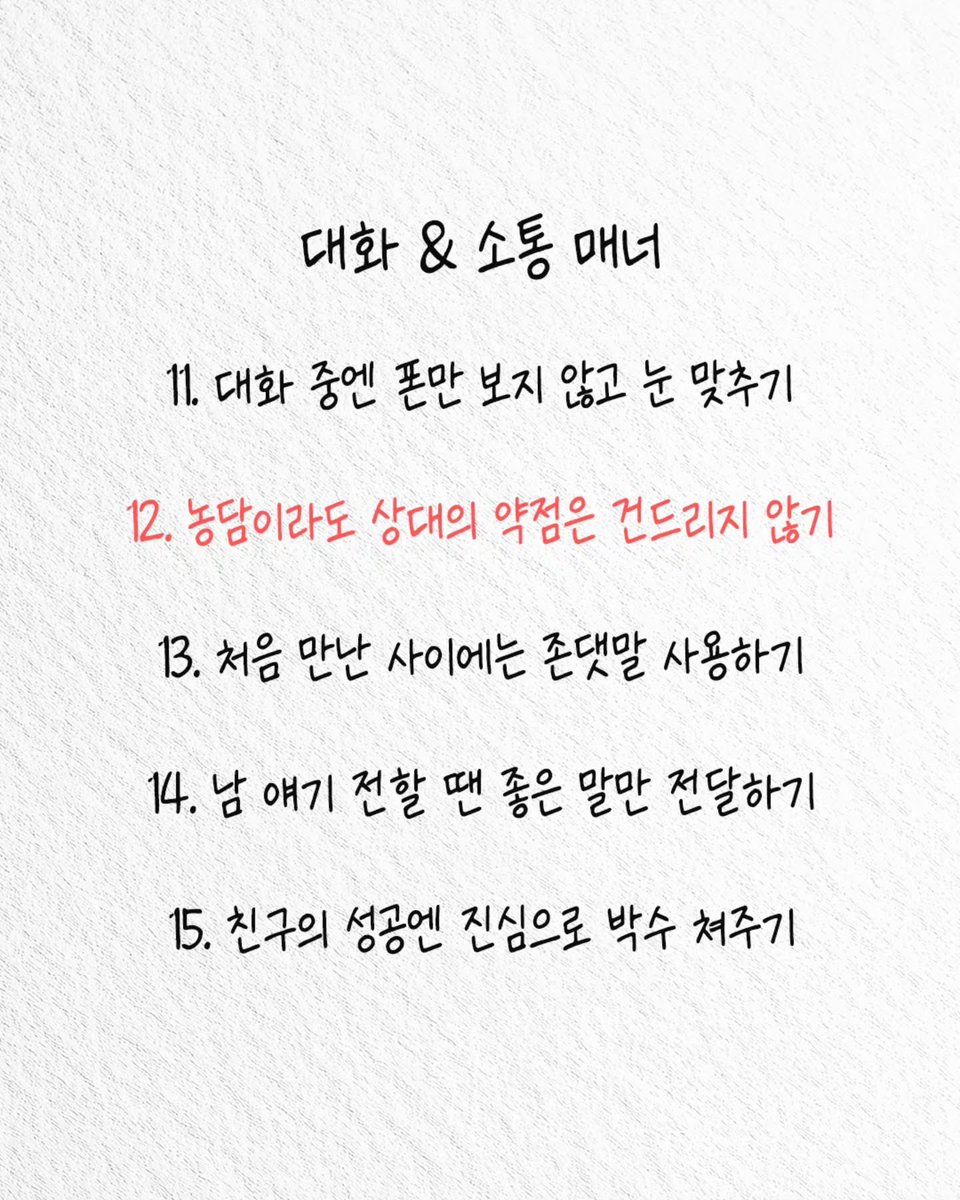 대화 & 소통 매너
11. 대화 중엔 폰만 보지 않고 눈 맞추기
12. 농담이라도 상대의 약점은 건드리지 않기
13. 처음 만난 사이에는 존댓말 사용하기
14. 남 얘기 전할 땐 좋은 말만 전달하기
15. 친구의 성공엔 진심으로 박수 쳐주기